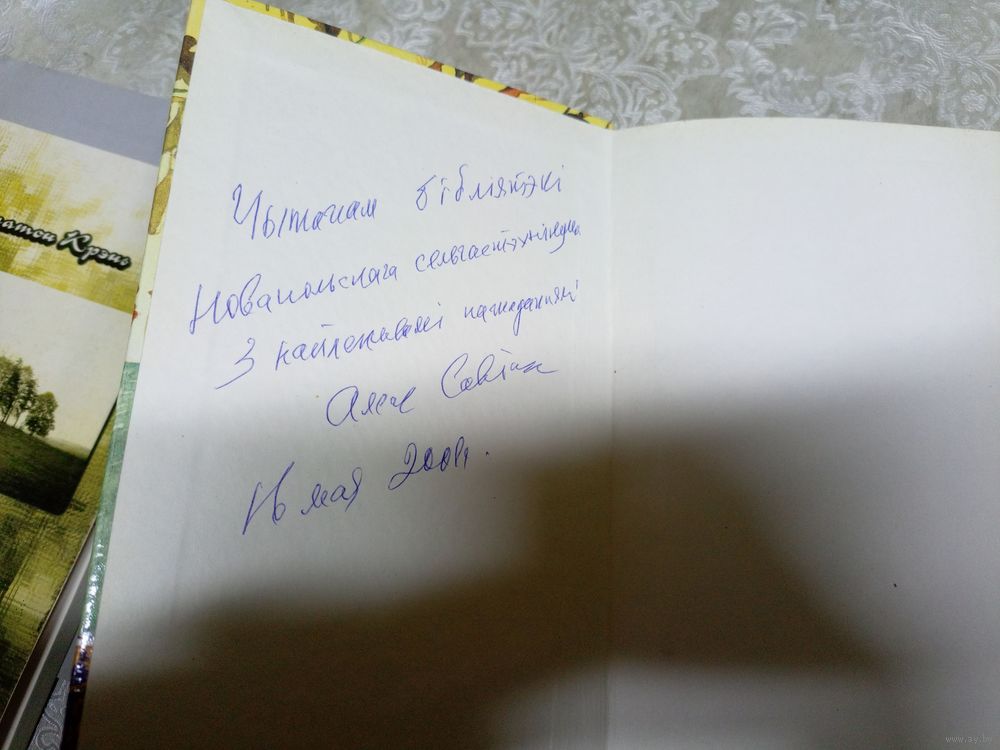 Чытачам бібліятэкі
Новапольскага сельгастэхнікума
З найлепшымі пажаданнямі
Алесь Савіцкі
16 мая 2001.
атол Крэйд
www.ay.by